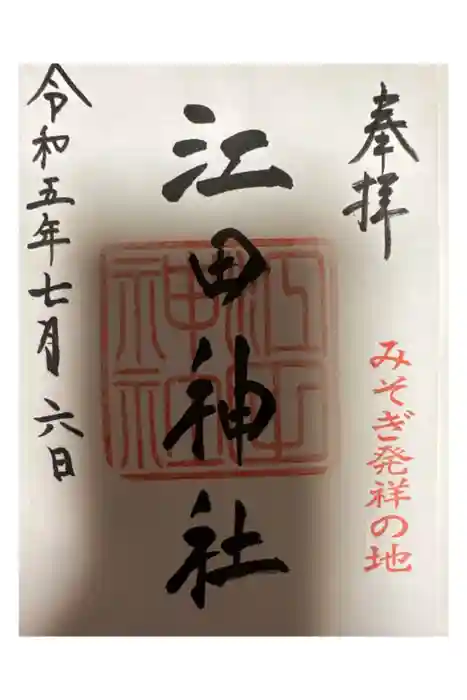 奉拝
みそぎ発祥の地
江田神社
江田神社
令和五年七月六日